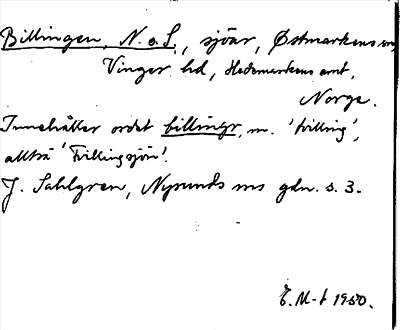 Billingen, N. o. S., sjöar, Östmarkens sn,
Vinger hd, Hedemarkens amt,
Norge.
Innehåller ordet billingr, m. 'tvilling',
alltså 'Tvillingsjön'.
J. Sahlgren, Nysunds sns gdn. s. 3.
E. M-t 1950.